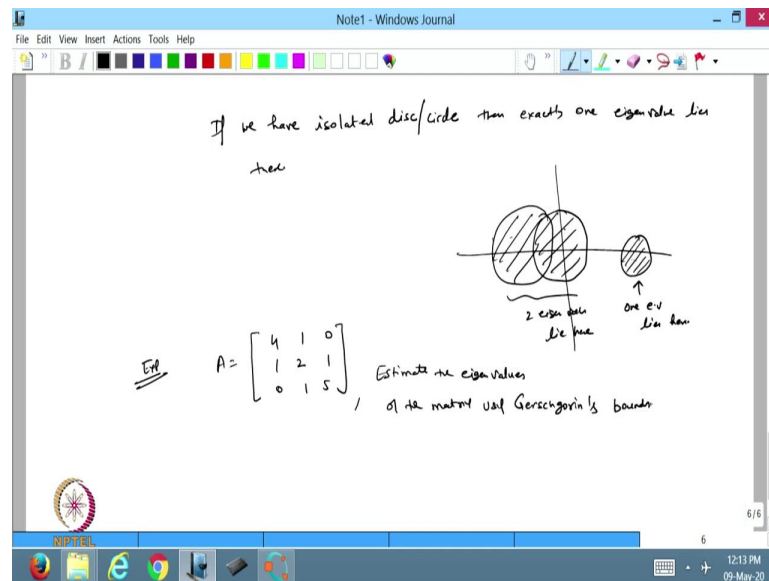 Note1 - Windows Journal
File Edit View Insert Actions Tools Help
B I
If we have isolated disc/circle then exactly one eigenvalue lies
there
2 eigen
lie here
one e.v
lies here
Exp A = [ 4 1 0
1 2 1
0 1 5 ] , Estimate the eigenvalues
of the matrix Gerschgorin's bounds
NPTEL
6/6
6
12:13 PM
09-May-20